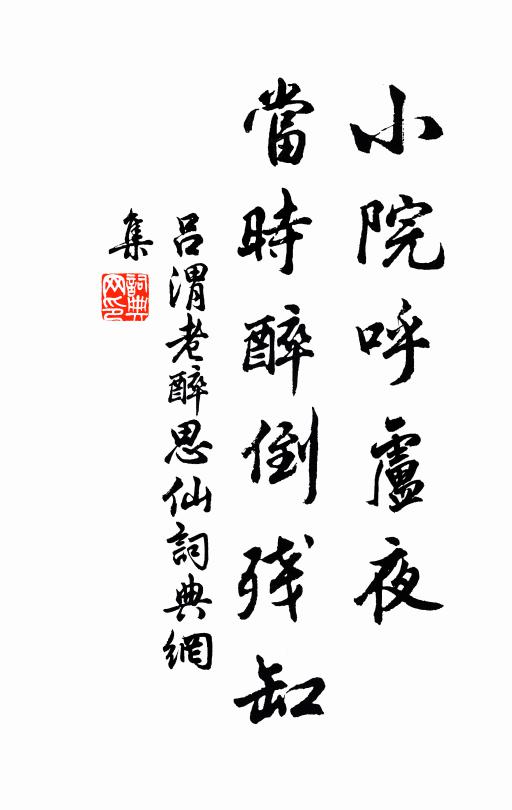 小院呼盧夜
當時醉倒残缸
吕渭老醉思仙詞典網
集
詞典
网印